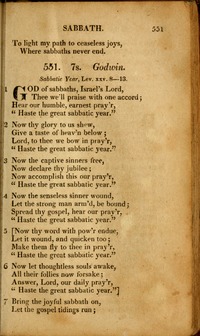 SABBATH. 551
To light my path to ceaseless joys,
Where sabbaths never end.
551. 7s. Godwin.
Sabbatic Year, LEV. xxv. 8—13.
1 GOD of sabbaths, Israel's Lord,
Thee we'll praise with one accord;
Hear our humble, earnest pray'r,
"Haste the great sabbatic year."
2 Now thy glory to us shew,
Give a taste of heav'n below;
Lord, to thee we bow in pray'r,
"Haste the great sabbatic year."
3 Now the captive sinners free,
Now declare thy jubilee;
Now accomplish this our pray'r,
"Haste the great sabbatic year."
4 Now the senseless sinner wound,
Let the strong man arm'd, be bound;
Spread thy gospel, hear our pray'r,
"Haste the great sabbatic year."
5 [Now thy word with pow'r endue,
Let it wound, and quicken too;
Make them fly to thee in pray'r,
"Haste the great sabbatic year."
6 Now let thoughtless souls awake,
All their follies now forsake;
Answer, Lord, our daily pray'r,
"Haste the great sabbatic year."]
7 Bring the joyful sabbath on,
Let the gospel tidings run;